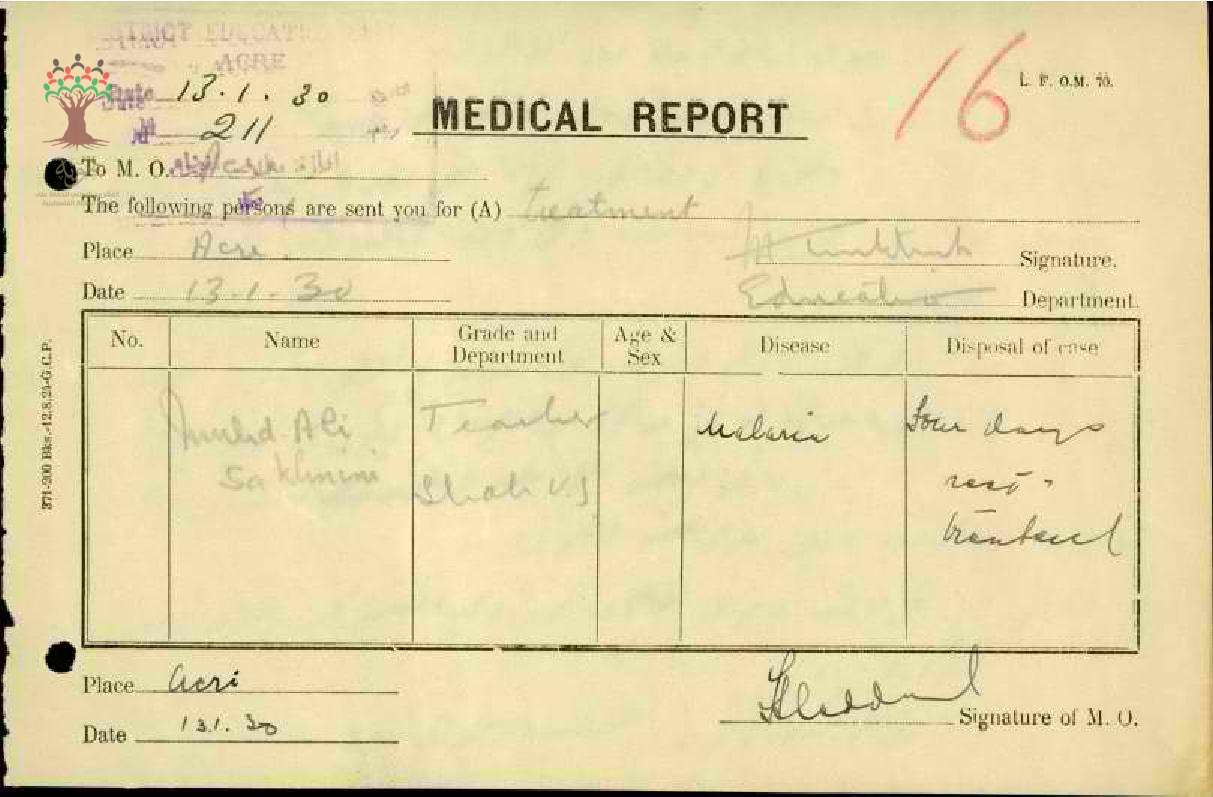 DISTRICT EDUCATION
ACRE
Date 13.1.30
16
L. F. O.M. 70.
№ 211
MEDICAL REPORT
To M. O. Acre
The following persons are sent you for (A) treatment
Place Acre.
Signature.
Date 13.1.30
Education Department.
No. Name Grade and Department Age & Sex Disease Disposal of case
Ali Sakhnini Teacher V.S Malaria Four days rest - treated
371-200 Bks.-12.8.25-G.C.P.
Place Acre
Signature of M. O.
Date 13.1.30